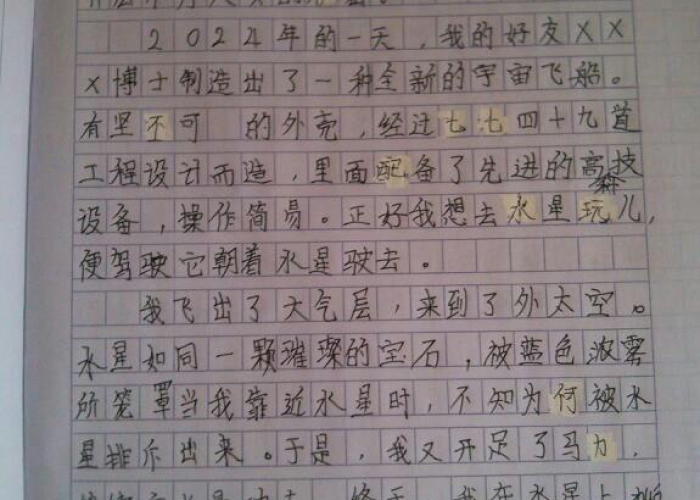 2024年的一天，我的好友XX
X博士制造出了一种全新的宇宙飞船。
有坚不可 的外壳，经过七七四十九道
工程设计而造，里面配备了先进的高科技
设备，操作简易。正好我想去水星玩儿，
便驾驶它朝着水星驶去。
我飞出了大气层，来到了外太空。
水星如同一颗璀璨的宝石，被蓝色浓雾
所笼罩当我靠近水星时，不知为何被水
星排斥出来。于是，我又开足了马力，